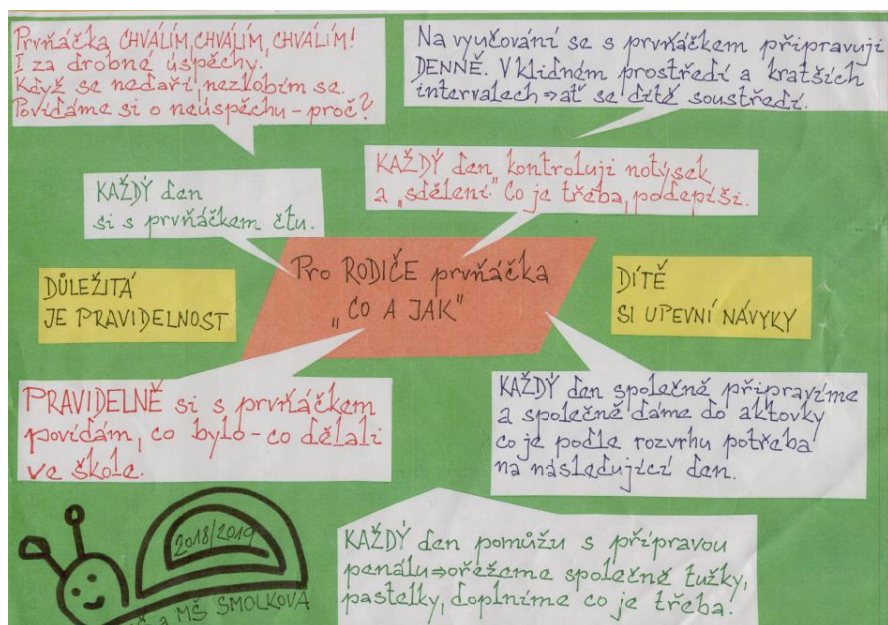 Prvňáčka CHVÁLÍM, CHVÁLÍM, CHVÁLÍM!
I za drobné úspěchy.
Když se nedaří, nezlobím se.
Povídáme si o neúspěchu – proč?
Na vyučování se s prvňáčkem připravuji
DENNĚ. V klidném prostředí a kratších
intervalech ⇒ ať se dítě soustředí.
KAŽDÝ den
si s prvňáčkem čtu.
KAŽDÝ den kontroluji notýsek
a „sdělení“ Co je třeba, podepíši.
Pro RODIČE prvňáčka
„CO A JAK“
DŮLEŽITÁ
JE PRAVIDELNOST
DÍTĚ
SI UPEVNÍ NÁVYKY
PRAVIDELNĚ si s prvňáčkem
povídám, co bylo – co dělali
ve škole.
KAŽDÝ den společně připravíme
a společně dáme do aktovky
co je podle rozvrhu potřeba
na následující den.
KAŽDÝ den pomůžu s přípravou
penálu ⇒ ořežeme společně tužky,
pastelky, doplníme co je třeba!
2018/2019
a MŠ SMOLKOVA